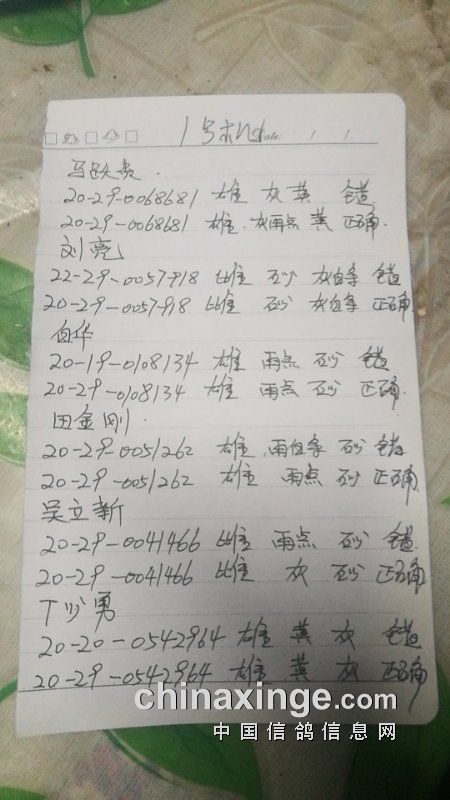 1号机 Date / /
马跃贵.
20-29-0068681 雄 灰 黄 错
20-29-0068681 雄. 灰雨点 黄 正确.
刘亮
22-29-0057918 雌 砂 灰白条 错
20-29-0057918 雌 砂 灰白条 正确
白华
20-19-0108134 雄 雨点 砂 错
20-29-0108134 雄 雨点 砂 正确.
田金刚.
20-29-0051262 雄 雨白条 砂 错
20-29-0051262 雄 雨点 砂 正确
吴立新
20-29-0041466 雌 雨点 砂 错
20-29-0041466 雌 灰 砂 正确
丁少勇
20-20-0542964 雄 黄 灰 错
20-29-0542964 雄 黄 灰 正确
chinaxinge.com
中国信鸽信息网